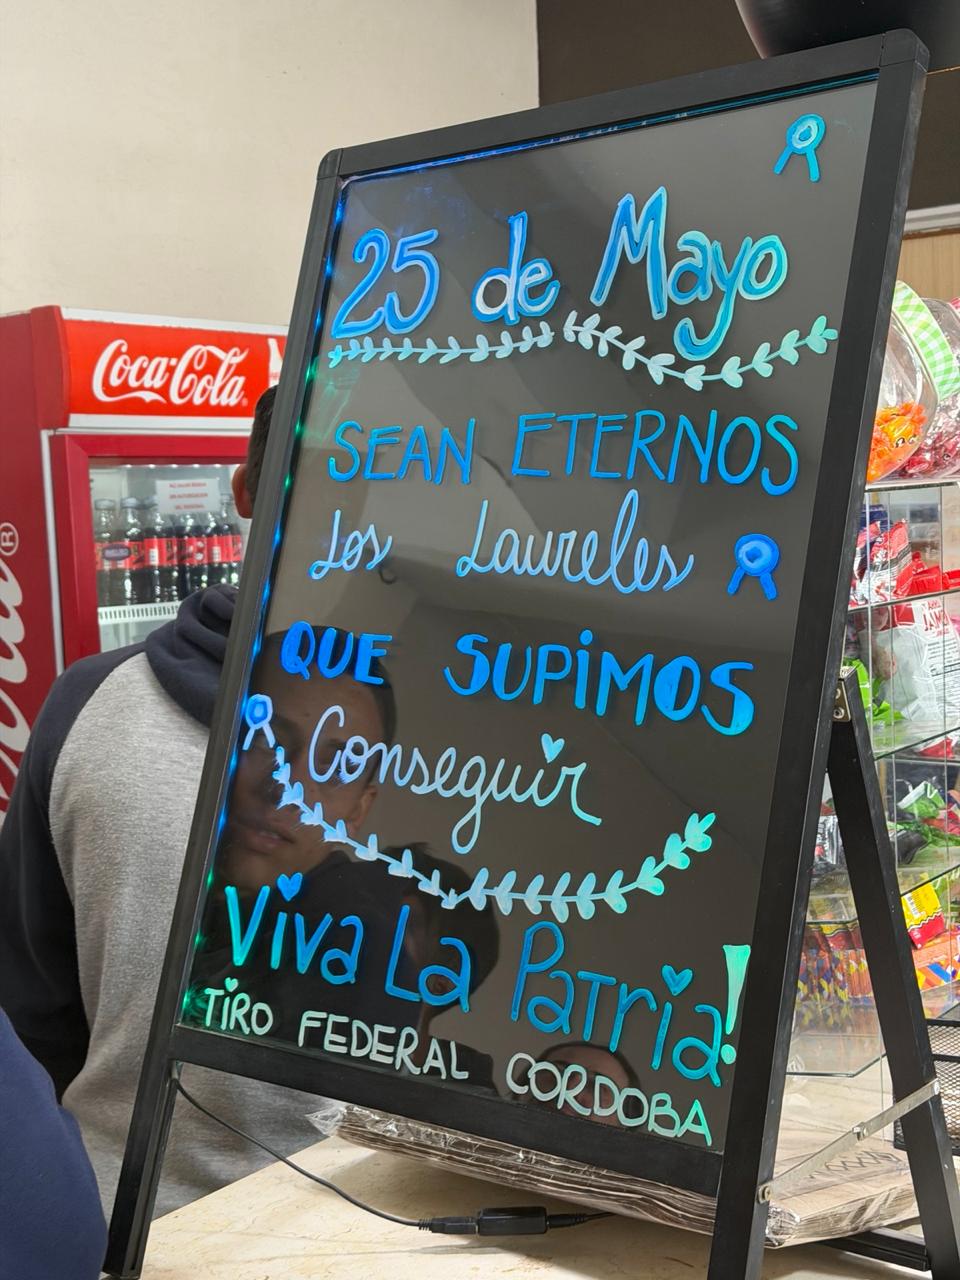 25 de Mayo
SEAN ETERNOS
Los Laureles
QUE SUPiMOS
Conseguir
Viva La Patria!
TiRO FEDERAL CORDOBA
Coca-Cola